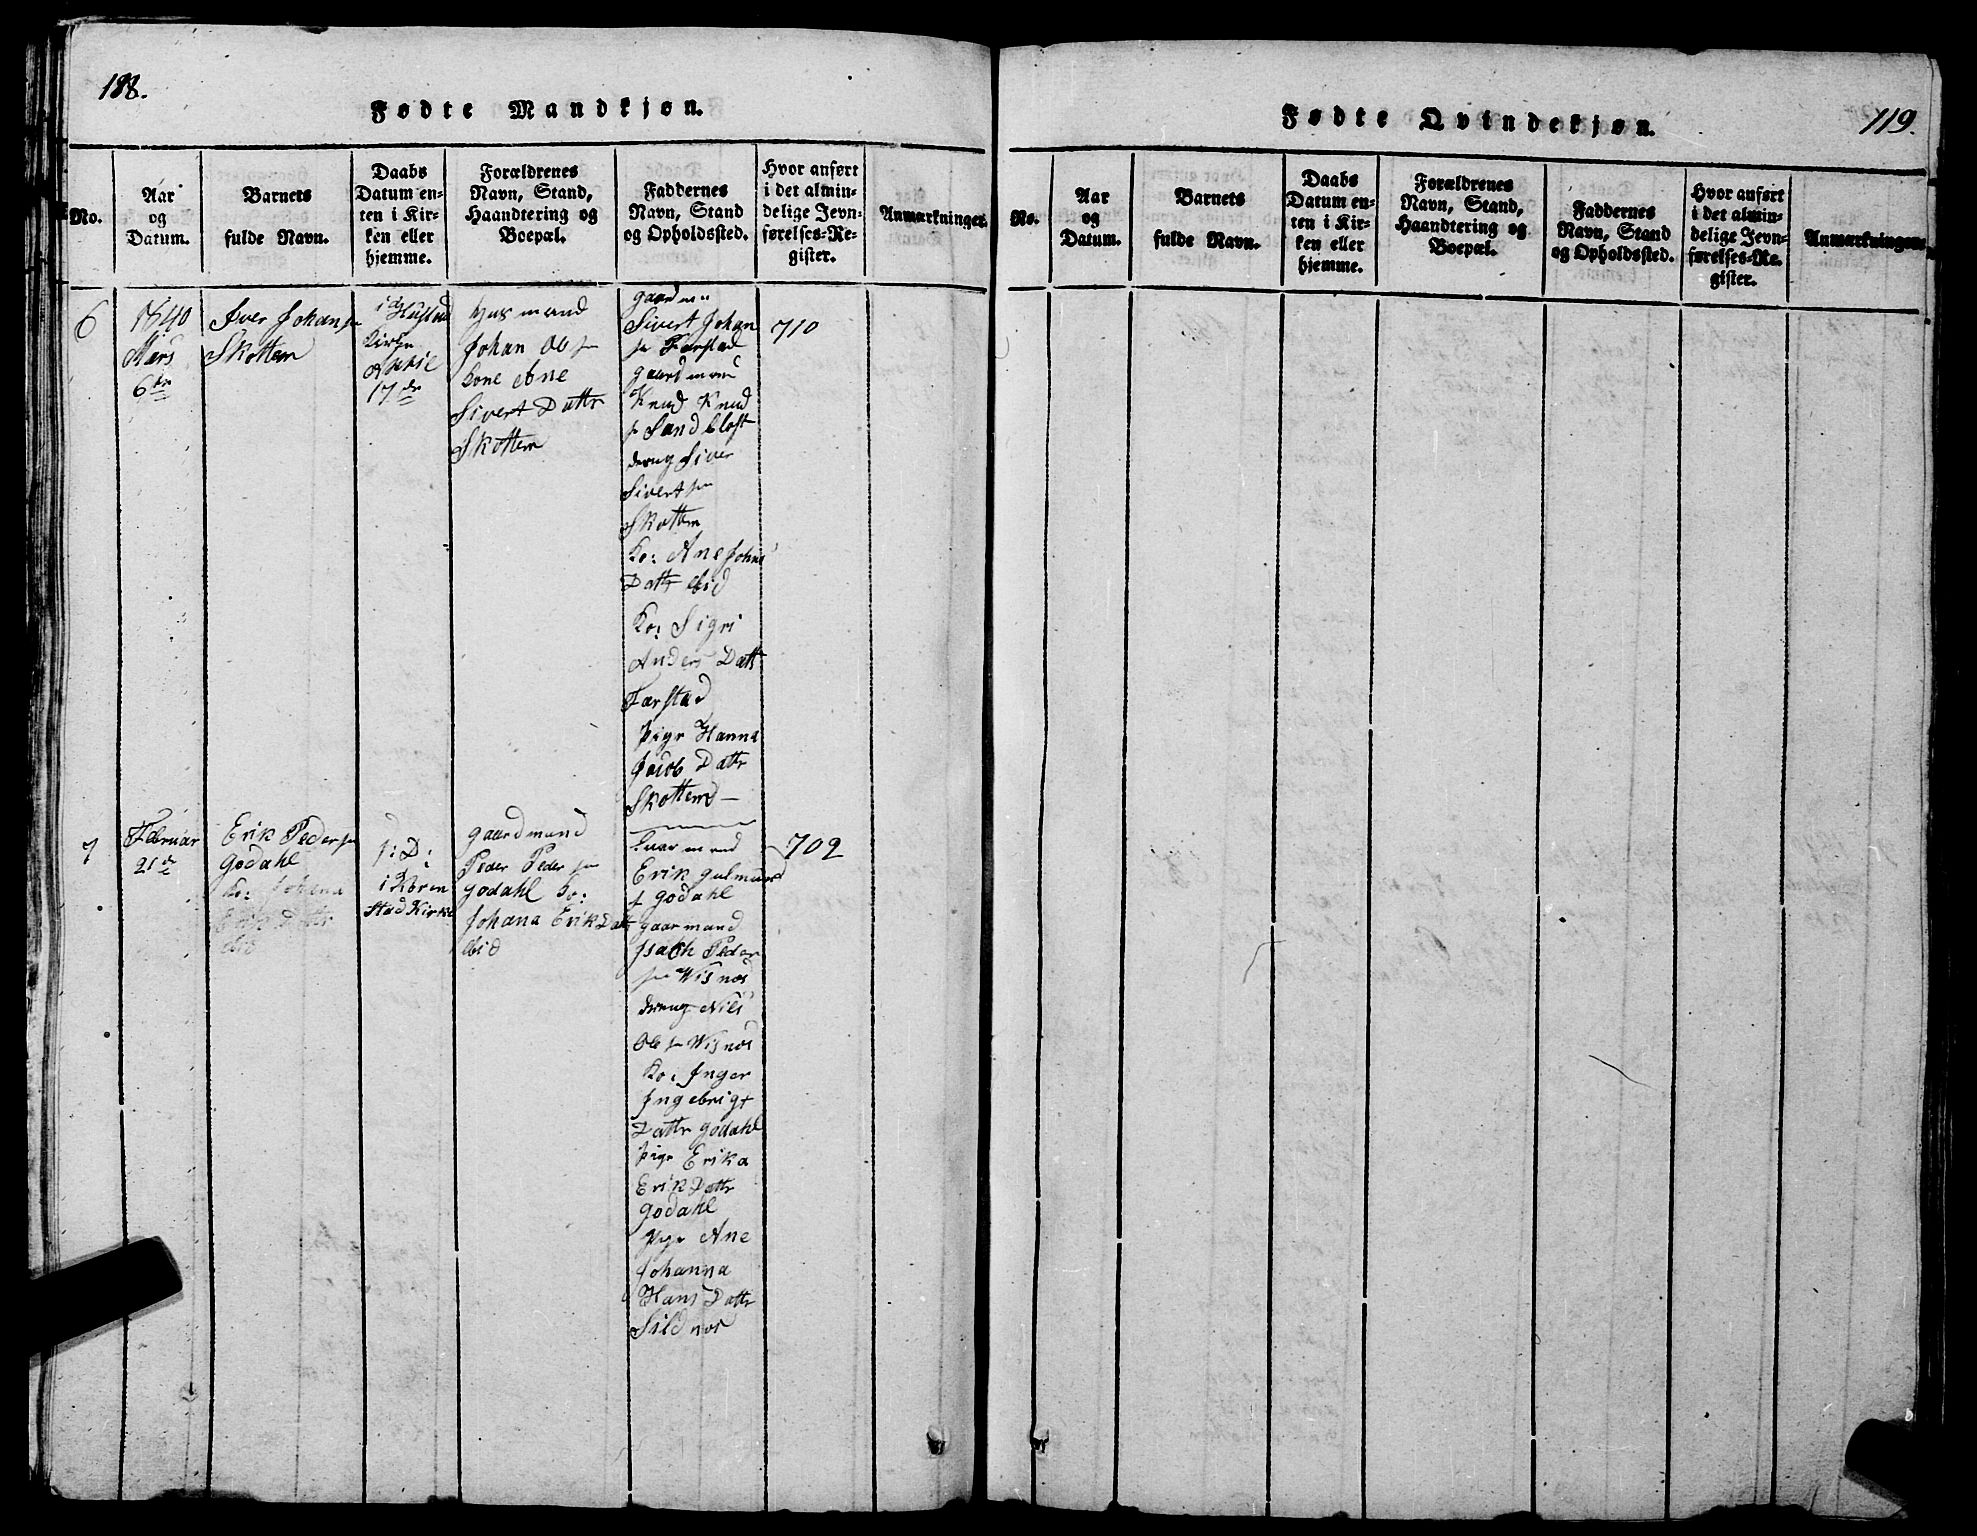 188.
Fødte Mandkjøn.
No.
Aar
og
Datum.
Barnets
fulde Navn.
Daabs
Datum en-
ten i Kir-
ken eller
hjemme.
Forældrenes
Navn, Stand,
Haandtering og
Boepæl.
Faddernes
Navn, Stand
og Opholdssted.
Hvor anført
i det almin-
delige Jevn-
førelses-Re-
gister.
Anmærkninger.
6
1840
Mars
6te
Iver Johans
Skottem
i Hustad
Kirke
April
17de
Husmand
Johan Ols
Kone Ane
Sivert Dattr
Skottem
gaardm
Sivert Johan
sn Farstad
gaardmand
Knud Knud
s Sandblost
dreng Siver
Sivert sn
Skottem
Ko: Ane Johns
Dattr ibid
Ko: Sigri
Anders Datt
Farstad
Pige Hanna
Jacob Dattr
Skottem
710
7
Februar
21de
Erik Peder sn
Godahl
Ko: Johana
Erik Dattr
ibid
i: D:
i
stad Kirke
gaardmand
Peder Peder sn
Godahl Ko:
Johana Erik Datt
ibid
Erik
s Godahl
gaarmand
Isach Peder
sn Wisnæs
dreng Nils
Ole sn Wisnæs
Ko: Inger
Ingebrigt
Dattr Godahl
pige Erika
Erik Dattr
Godahl
Pige Ane
Johanna
Hans Dattr
Sildnæs
702
119.
Fødte Qvindekjøn.
No.
Aar
og
Datum.
Barnets
fulde Navn.
Daabs
Datum en-
ten i Kir-
ken eller
hjemme.
Forældrenes
Navn, Stand,
Haandtering og
Boepæl.
Faddernes
Navn, Stand
og Opholdssted.
Hvor anført
i det almin-
delige Jevn-
førelses-Re-
gister.
Anmærkninger.